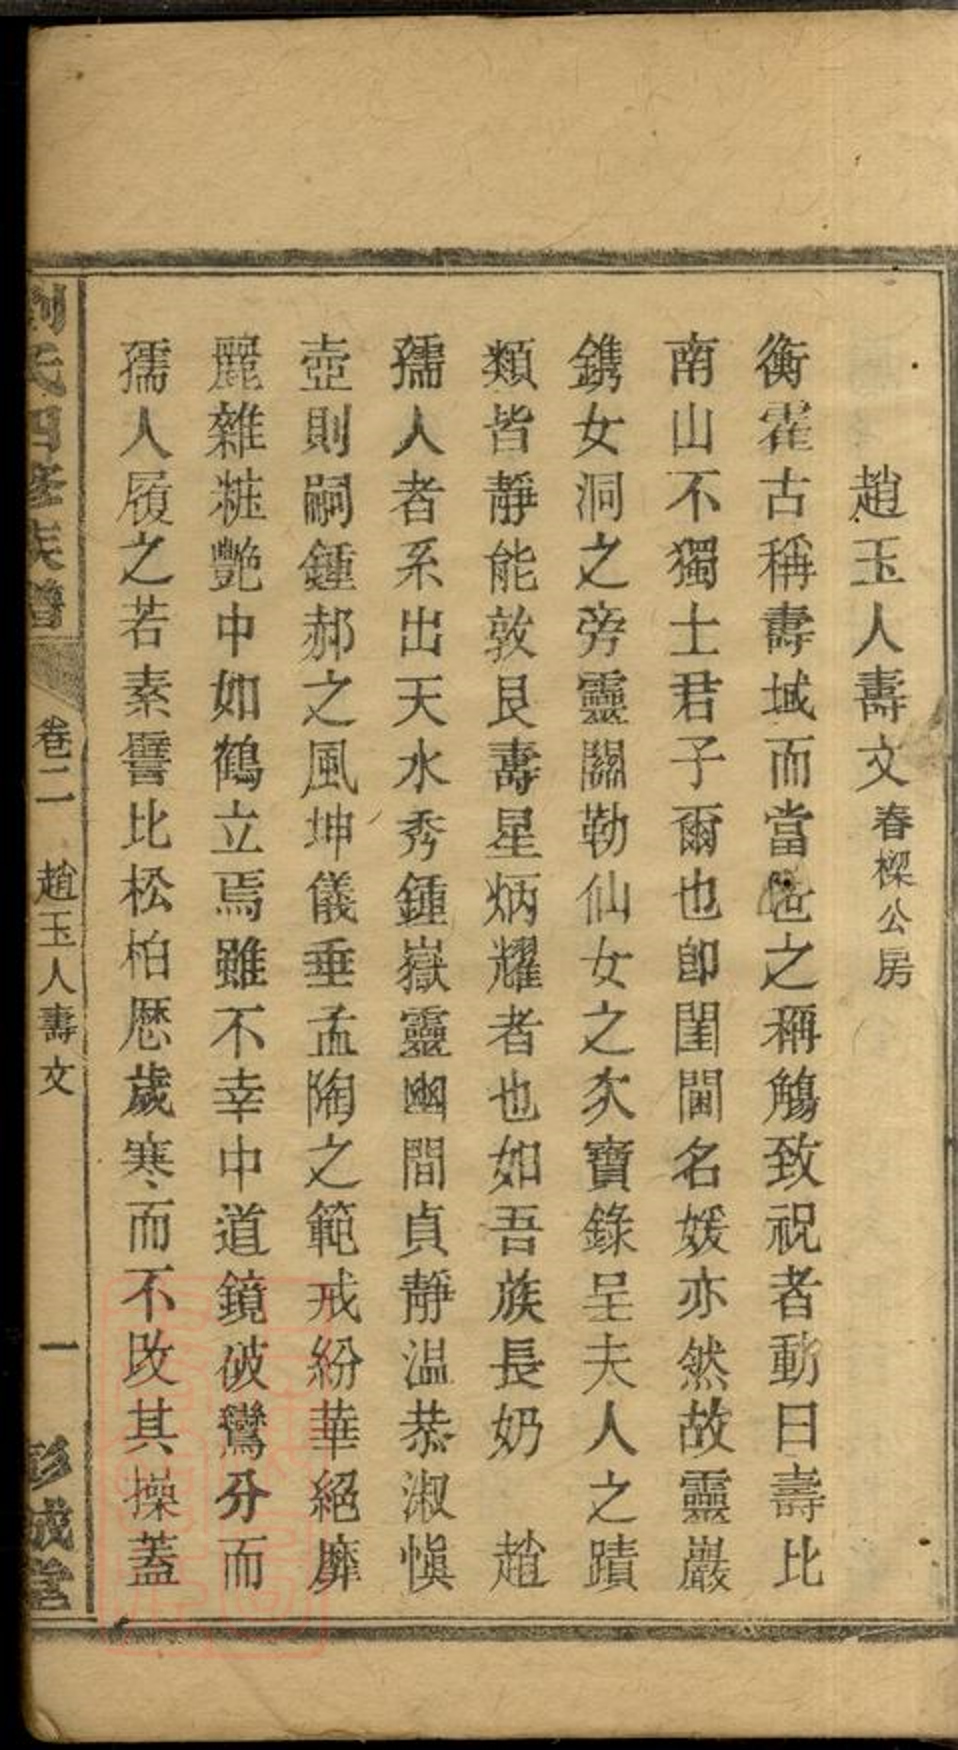 趙玉人壽文 春樑公房
衡霍古稱壽域而當世之稱觴致祝者動曰壽比
南山不獨士君子爾也卽閨閫名媛亦然故靈巖
鐫女洞之旁靈關勒仙女之夊寶錄呈夫人之蹟
類皆靜能敦艮壽星炳耀者也如吾族長奶 趙
孺人者系出天水秀鍾嶽靈幽間貞靜温恭淑愼
壺則嗣鍾郝之風坤儀垂孟陶之範戒紛華絕靡
麗雜粧艷中如鶴立焉雖不幸中道鏡破鸞分而
孺人履之若素譬比松柏歷歲寒而不改其操蓋
劉氏四修族譜 卷二 趙玉人壽文 一 彭城堂